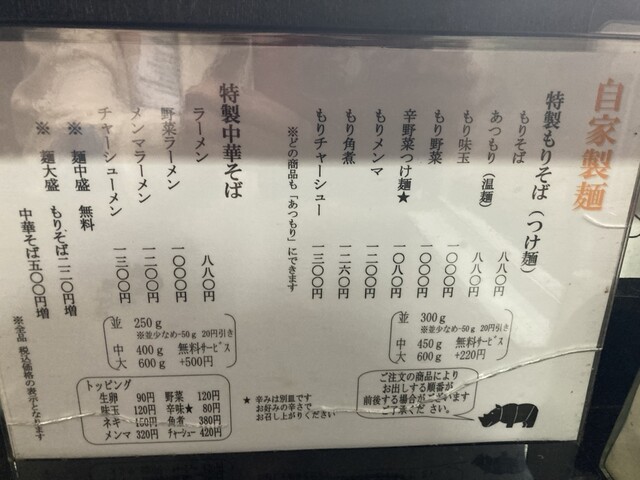 自家製麺
特製もりそば（つけ麺）
もりそば 八八〇円
あつもり（温麺） 八八〇円
もり味玉 一〇〇〇円
もり野菜 一〇〇〇円
辛野菜つけ麺★ 一〇八〇円
もりメンマ 一二〇〇円
もり角煮 一二六〇円
もりチャーシュー 一三〇〇円
※どの商品も「あつもり」にできます
並 300g
※並少なめ-50g 20円引き
中 450g 無料ｻｰﾋﾞｽ
大 600g +220円
特製中華そば
ラーメン 八八〇円
野菜ラーメン 一〇〇〇円
メンマラーメン 一二〇〇円
チャーシューメン 一三〇〇円
※ 麺中盛 無料
※ 麺大盛 もりそば二二〇円増
中華そば五〇〇円増
並 250g
※並少なめ-50g 20円引き
中 400g 無料ｻｰﾋﾞｽ
大 600g +500円
※全品 税込価格の表示となります
トッピング
生卵 90円 野菜 120円
味玉 120円 辛味★ 80円
ネギ 150円 角煮 380円
メンマ 320円 ﾁｬｰｼｭｰ 420円
★ 辛みは別皿です
お好みの辛さで
お召し上がりください
ご注文の商品により
お出しする順番が
前後する場合がございます
ご了承ください。